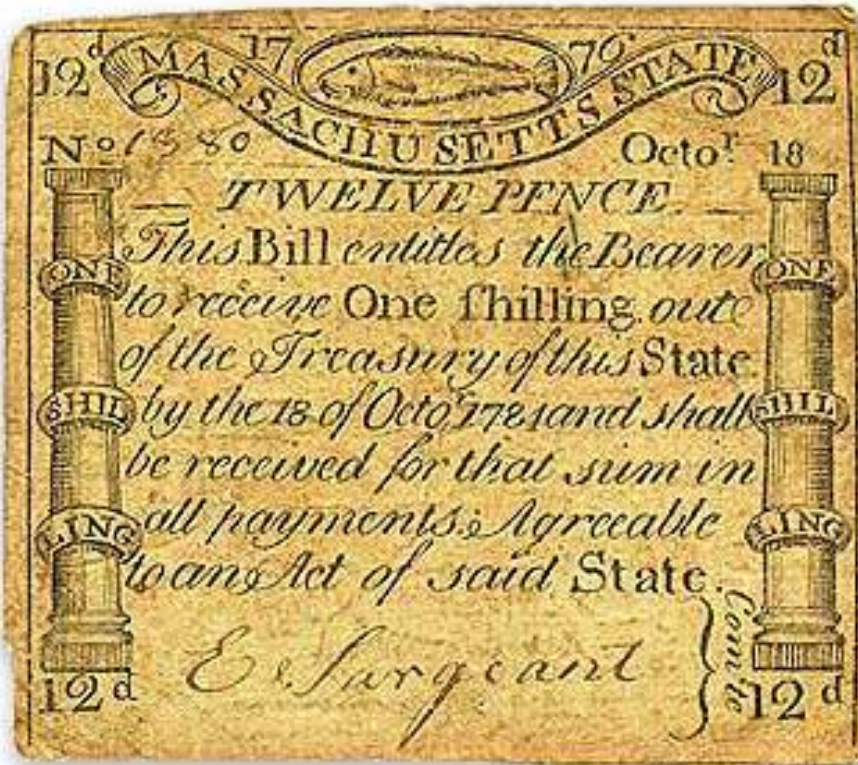 12d 17 76 12d
MASSACHUSETTS STATE
No 1380 Octor. 18
TWELVE PENCE.
This Bill entitles the Bearer
to receive One ſhilling out
of the Treasury of this State
by the 18 of Octor 1781 and shall
be received for that sum in
all payments. Agreeable
to an Act of said State.
ONE
SHIL
LING
ONE
SHIL
LING
E Sargeant
Comte
12d 12d